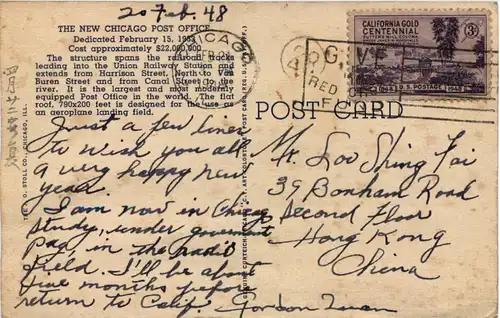 20 Feb. 48
THE NEW CHICAGO POST OFFICE
Dedicated February 15, 1933
Cost approximately $22,000,000
The structure spans the railroad tracks
leading into the Union Railway Station and
extends from Harrison Street, North to Van
Buren Street and from Canal Street to the
river. It is the largest and most modernly
equipped Post Office in the world. The flat
roof, 790x200 feet is designed for the use as
an aeroplane landing field.
Just a few lines
to wish you all
a very happy new
year.
I am now in Chicago
study, under government
pay, in the radio
field. I'll be about
five months before
return to Calif. Gordon Quan
CHICAGO
CALIFORNIA GOLD
CENTENNIAL
3¢
1848
U.S. POSTAGE
1948
GIVE
RED
POST CARD
Mr. Loo Shing Tai
39 Bonham Road
Second Floor
Hong Kong
China